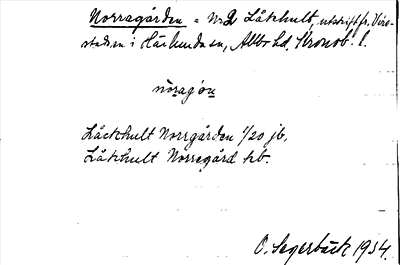 Norragården = N:o 2 Låkhult, utskrift fr. Vire-
staden i Härlunda sn, Allbo hd. Kronob. l.
nòragón
Låckhult Norrgården 1/20 jb.
Låkhult Norregård kb.
O. Segerbäck 1934.